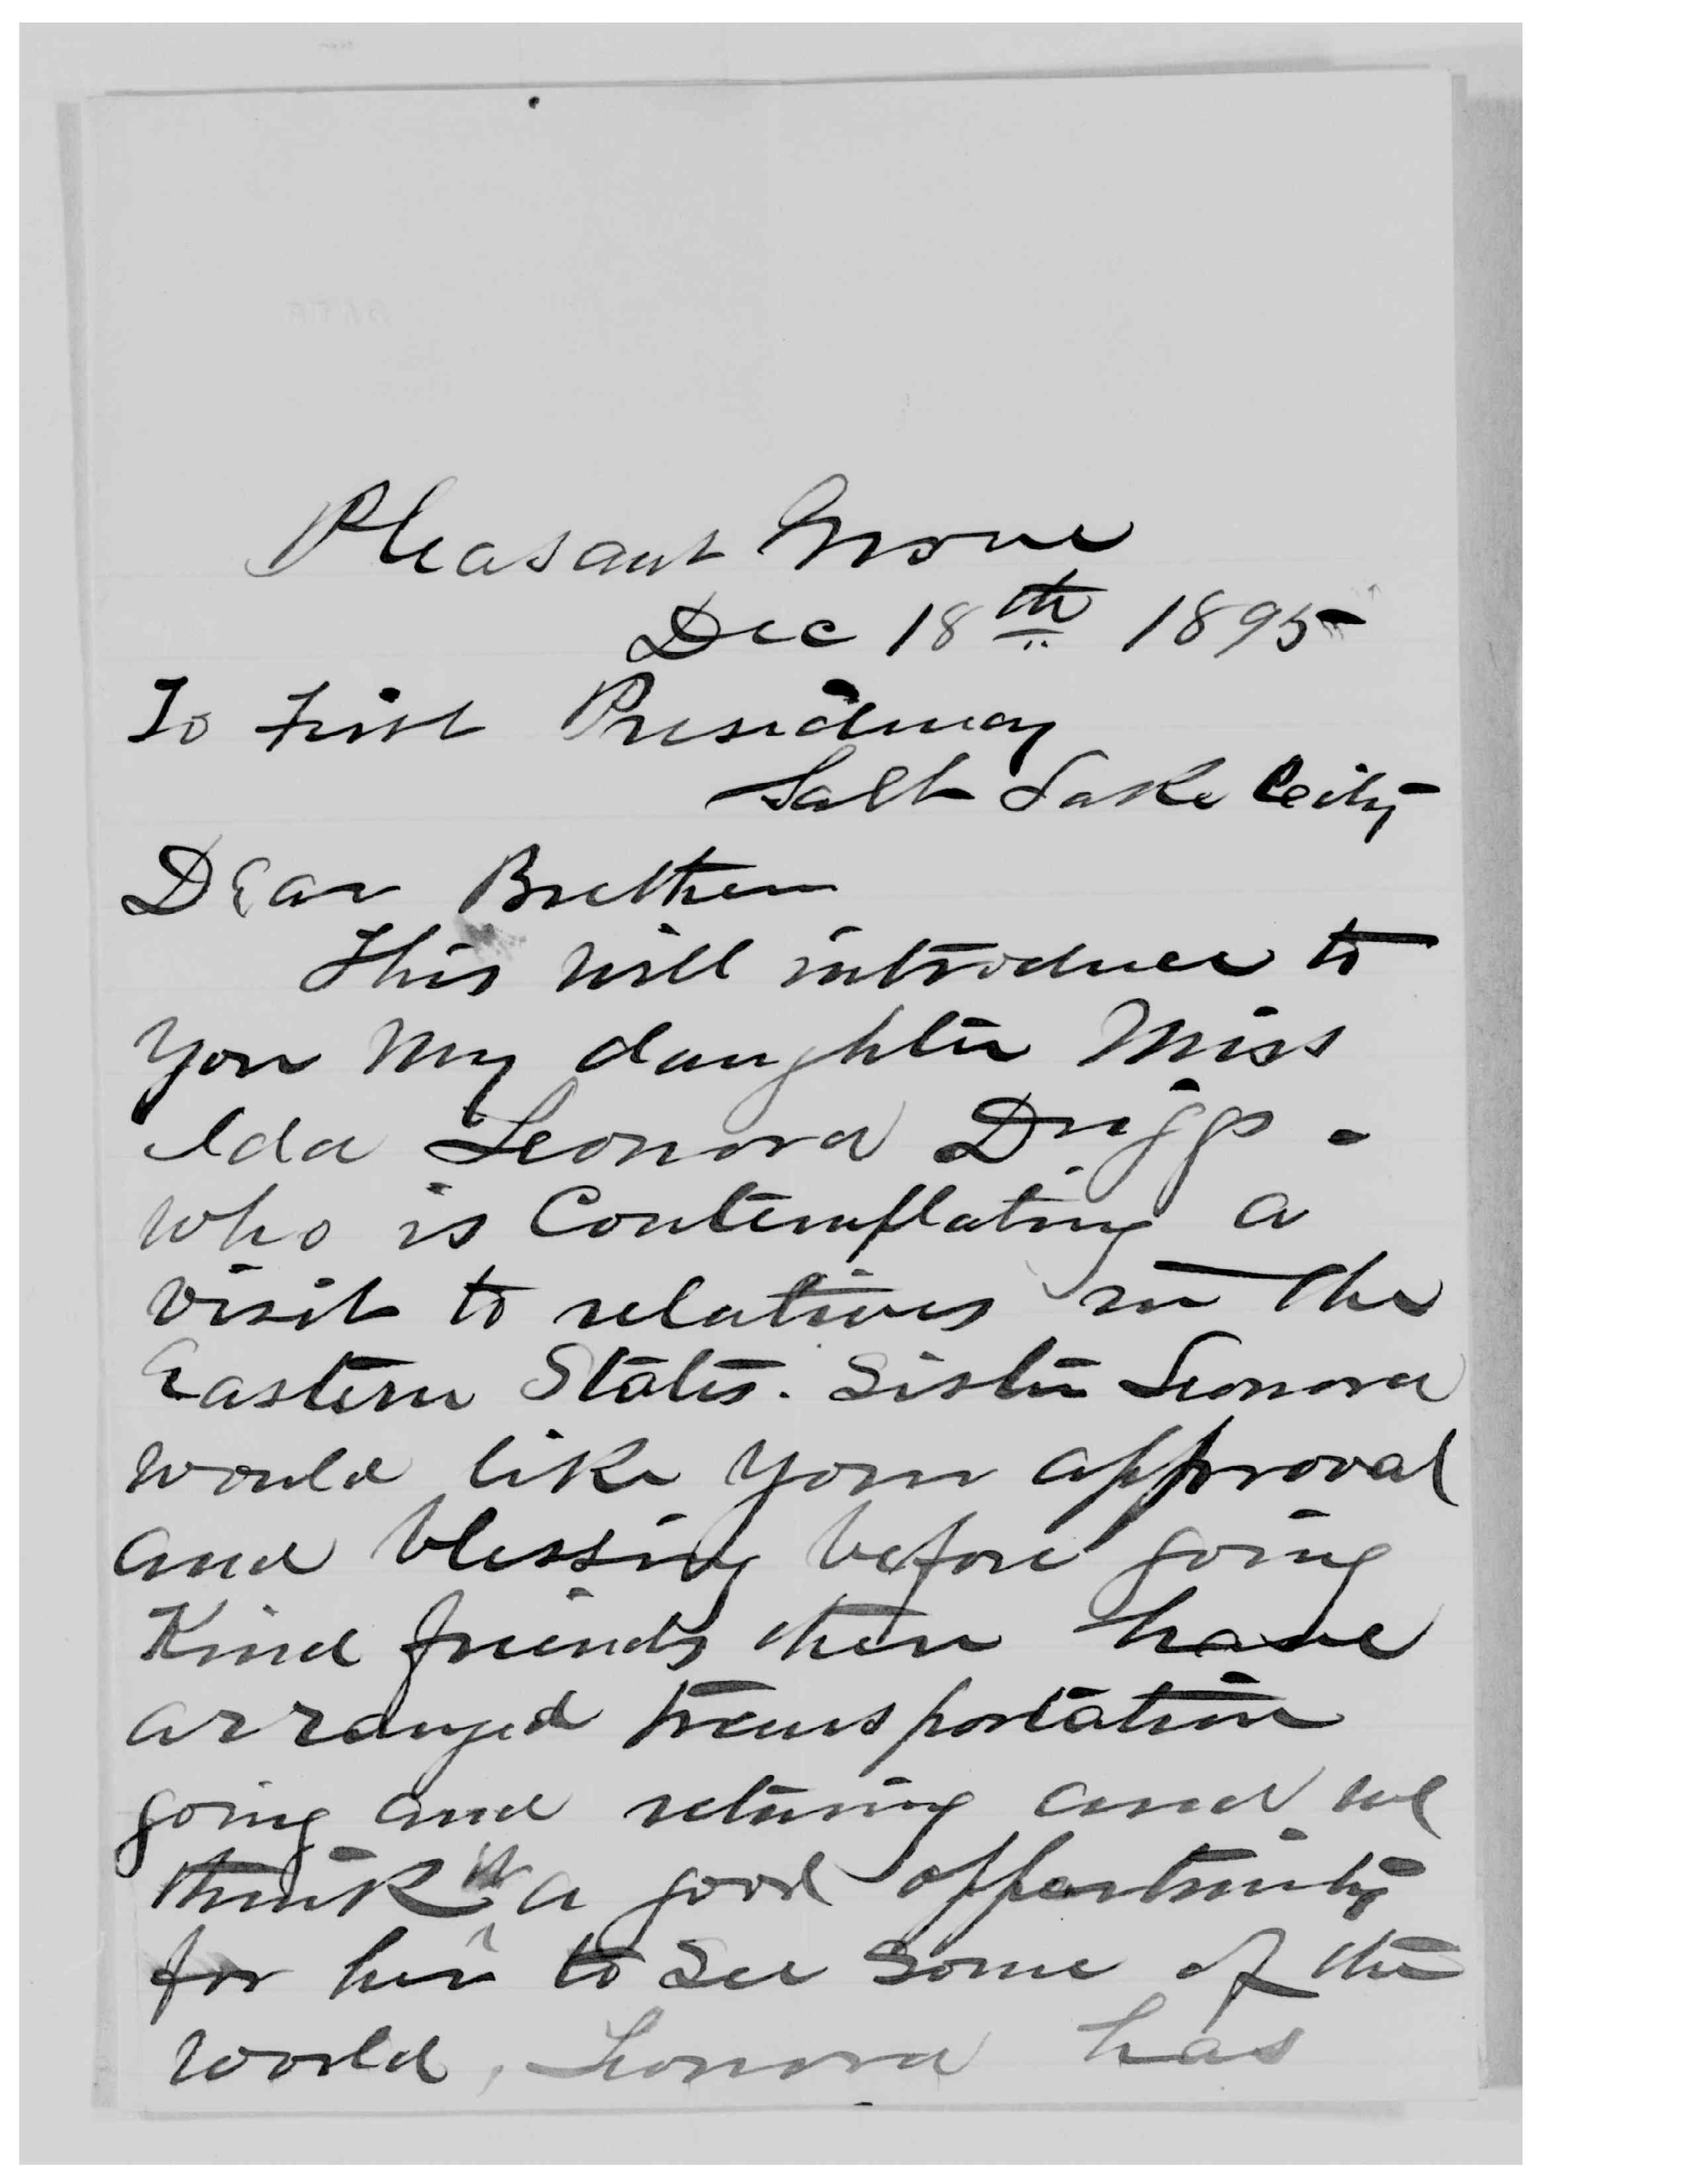 Pleasant Grove
Dec 18th 1895
To First Presidency
Salt Lake City
Dear Brethern
This will introduce to
you my daughter Miss
Ida Leonora Driggs.
who is Contemplating a
visit to relatives in the
Eastern States. Sister Leonora
would like your approval
and blessing before going
Kind friends there have
arranged transportation
going and returing and we
think it a good oppertunity
for her to See Some of the
world, Leonora has